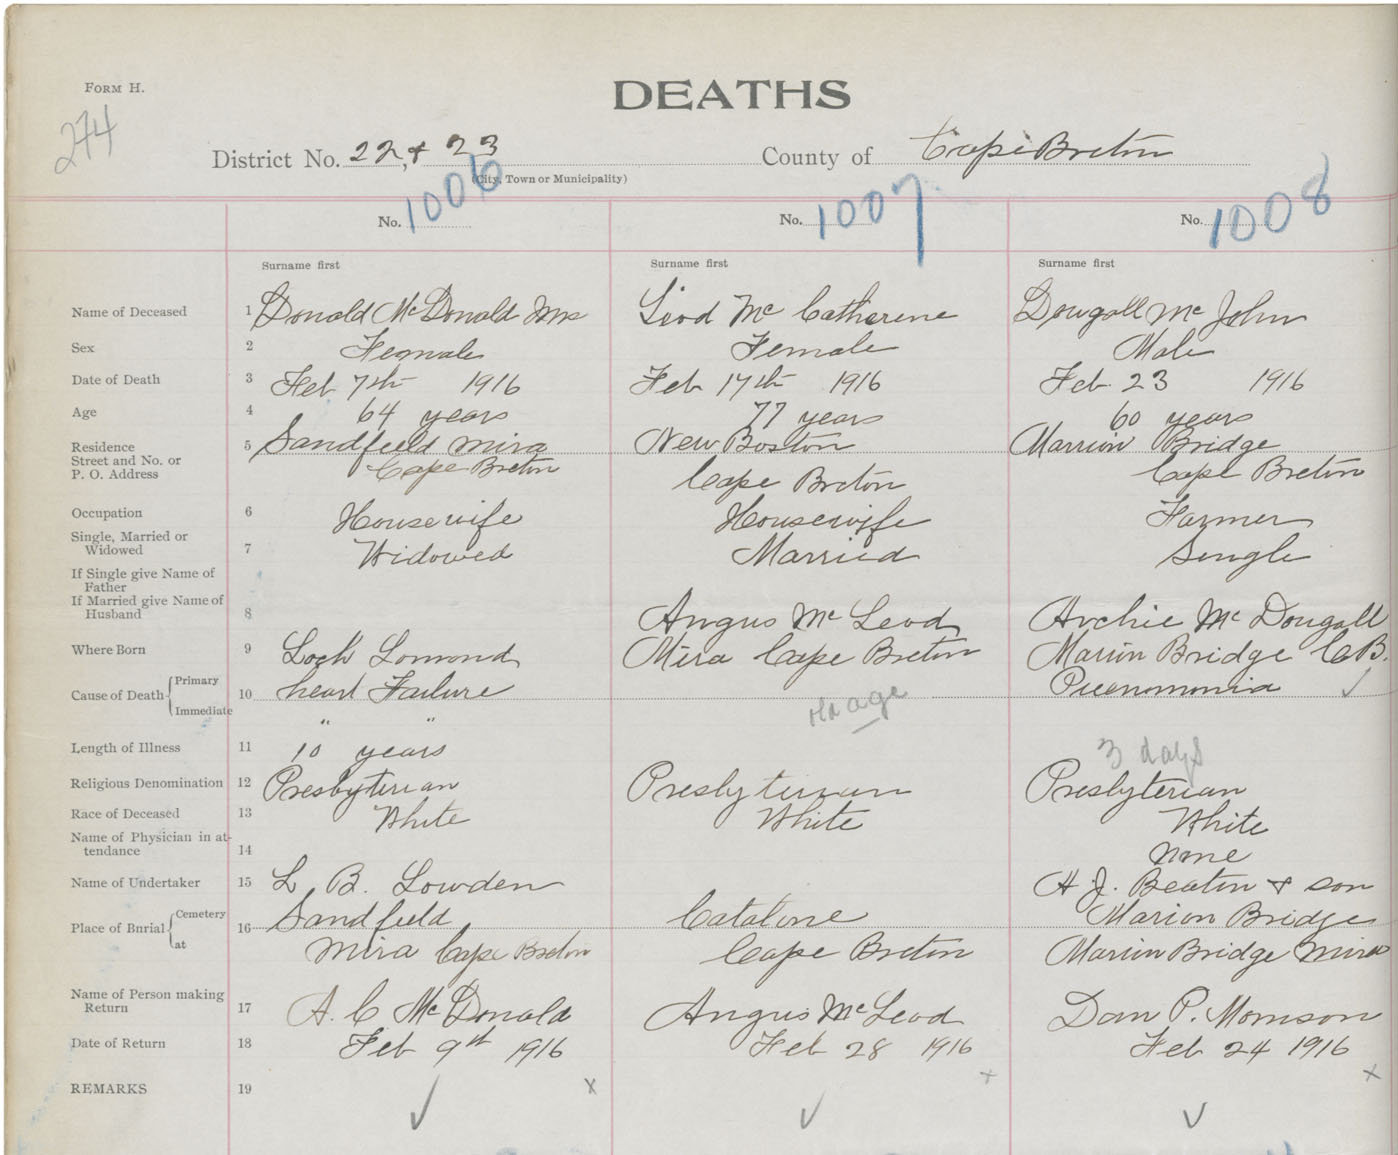 FORM H.
DEATHS
274
District No. 22, & 23
County of Cape Breton
(City, Town or Municipality)
No. 1006
No. 1007
No. 1008
Surname first
Surname first
Surname first
Name of Deceased 1 Donald McDonald Mrs
Leod Mc Catherene
Dougall Mc John
Sex 2 Female
Female
Male
Date of Death 3 Feb 7th 1916
Feb 17th 1916
Feb 23 1916
Age 4 64 years
77 years
60 years
Residence
Street and No. or
P. O. Address
5 Sandfield Mira
Cape Breton
New Boston
Cape Breton
Marrion Bridge
Cape Breton
Occupation 6 Housewife
Housewife
Farmer
Single, Married or
Widowed
7 Widowed
Married
Single
If Single give Name of
Father
If Married give Name of
Husband
8
Angus Mc Leod
Archie Mc Dougall
Where Born 9 Loch Lomond
Mira Cape Breton
Marion Bridge C.B.
Cause of Death { Primary
Immediate
10 heart Failure
" "
old age
Pueonomonia ✓
Length of Illness 11 10 years
3 days
Religious Denomination 12 Presbyterian
Presbyterian
Presbyterian
Race of Deceased 13 White
White
White
Name of Physician in at-
tendance
14
None
Name of Undertaker 15 L B. Lowden
H. J. Beaton & son
Place of Burial { Cemetery
at
16 Sandfield
Mira Cape Breton
Catalone
Cape Breton
Marion Bridge
Marion Bridge Mira
Name of Person making
Return
17 A. C McDonald
Angus McLeod
Dan P. Morrison
Date of Return 18 Feb 9th 1916
Feb 28 1916
Feb 24 1916
REMARKS 19 ✓ x
✓ +
✓ x